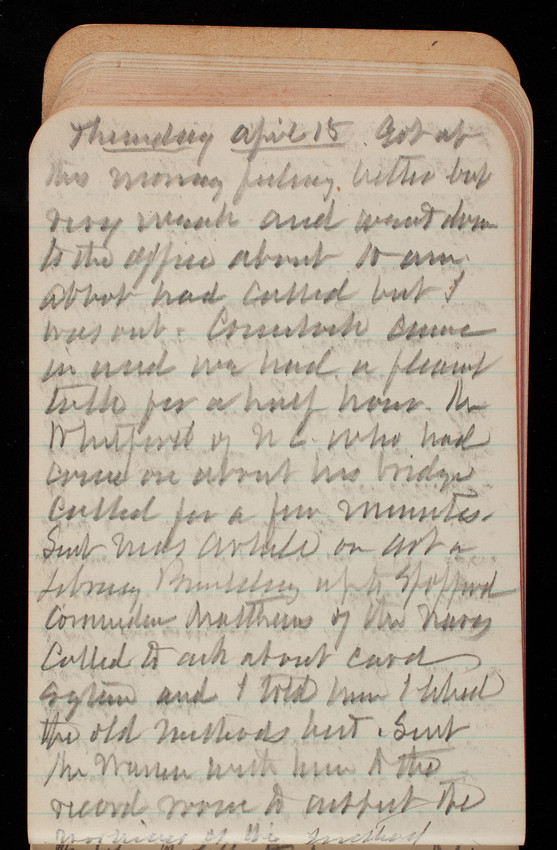 Thursday April 15 Got up
this morning feeling better but
very weak and went down
to the office about 10 am.
Abbot had called but I
was out. Comstock came
in and we had a pleasant
talk for a half hour. Mr
Whitford of N C. who had
come on about his bridge
called for a few minutes.
Sent Miss article on art in
Library Building up to Spofford
Commander Matthews of the Navy
Called to ask about card
System and I told him I liked
the old methods best. Sent
Mr Warren with him to the
record room to inspect the
working of the method